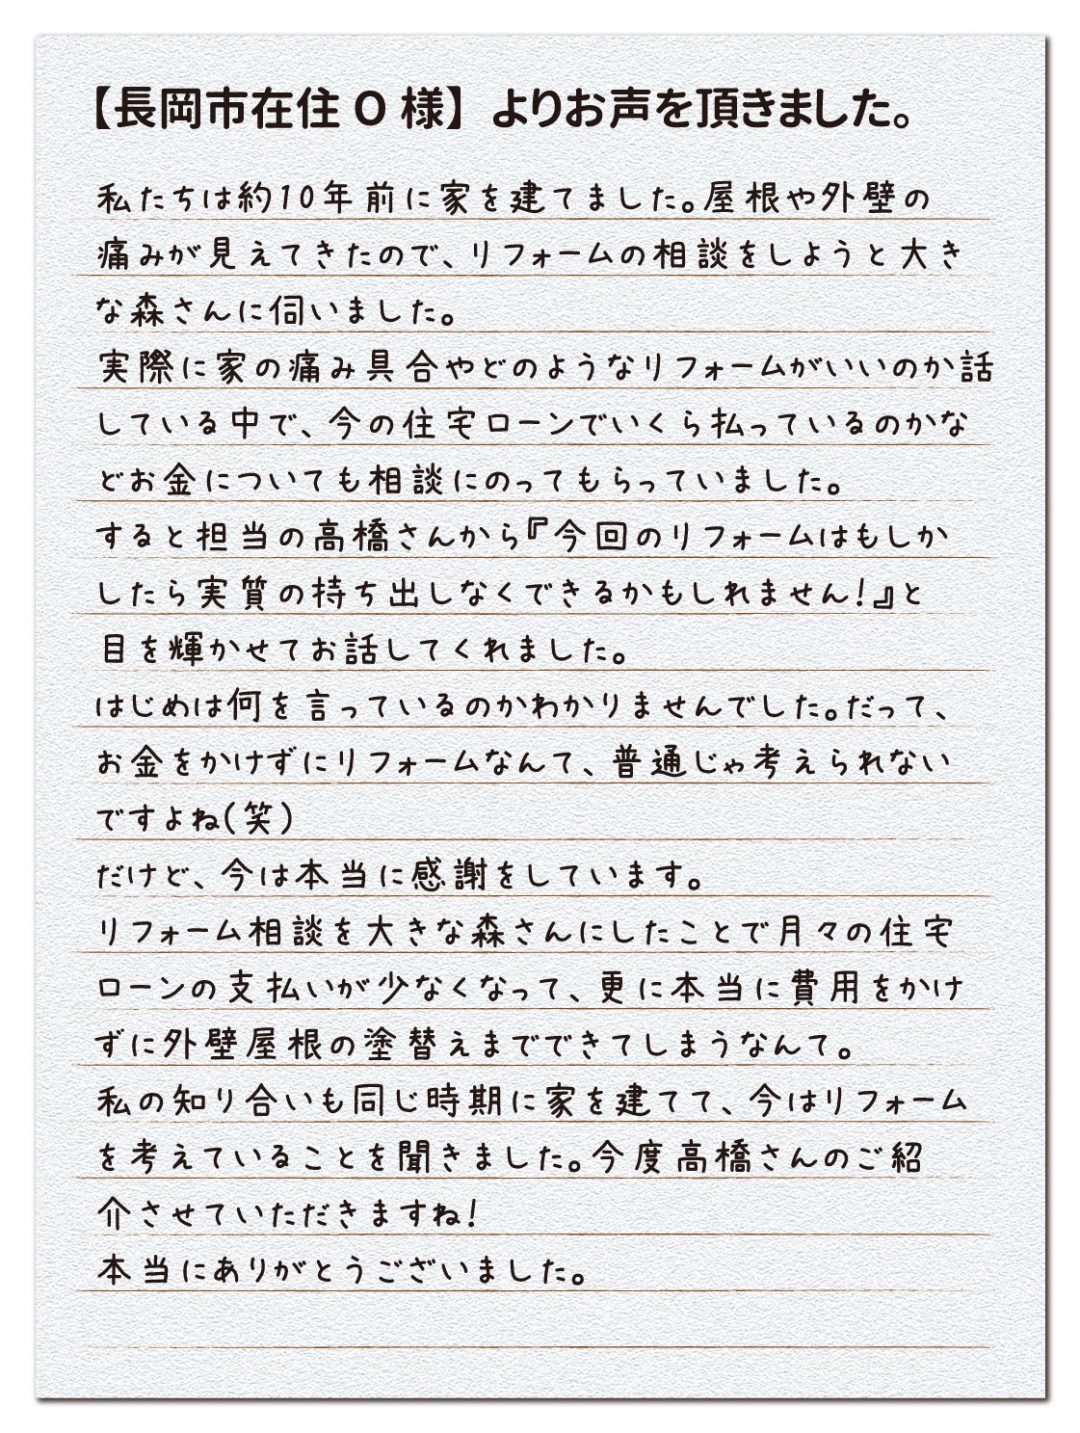 【長岡市在住O様】よりお声を頂きました。
私たちは約10年前に家を建てました。屋根や外壁の
痛みが見えてきたので、リフォームの相談をしようと大き
な森さんに伺いました。
実際に家の痛み具合やどのようなリフォームがいいのか話
している中で、今の住宅ローンでいくら払っているのかな
どお金についても相談にのってもらっていました。
すると担当の高橋さんから『今回のリフォームはもしか
したら実質の持ち出しなくできるかもしれません!』と
目を輝かせてお話してくれました。
はじめは何を言っているのかわかりませんでした。だって、
お金をかけずにリフォームなんて、普通じゃ考えられない
ですよね(笑)
だけど、今は本当に感謝をしています。
リフォーム相談を大きな森さんにしたことで月々の住宅
ローンの支払いが少なくなって、更に本当に費用をかけ
ずに外壁屋根の塗替えまでできてしまうなんて。
私の知り合いも同じ時期に家を建てて、今はリフォーム
を考えていることを聞きました。今度高橋さんのご紹
介させていただきますね!
本当にありがとうございました。